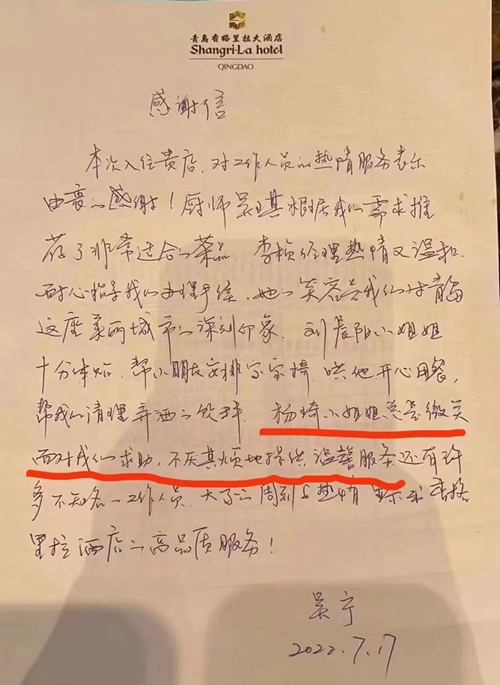 青岛香格里拉大酒店
Shangri-La hotel
QINGDAO
感谢信
本次入住贵店,对工作人员的热情服务表示
由衷的感谢!厨师 根据我们需求推
荐了非常适合的菜品。李桢经理热情又温和,
耐心指导我们办理手续,她的笑容是我们对青岛
这座美丽城市的深刻印象。刘晨阳小姐姐
十分体贴,帮小朋友安排宝宝椅,哄他开心用餐,
帮我们清理弄洒的饮料。杨琦小姐姐总是微笑
面对我们求助,不厌其烦地提供温馨服务还有许
多不知名的工作人员,大家的周到与热情 香格
里拉酒店的高品质服务!
吴宁
2022.7.17